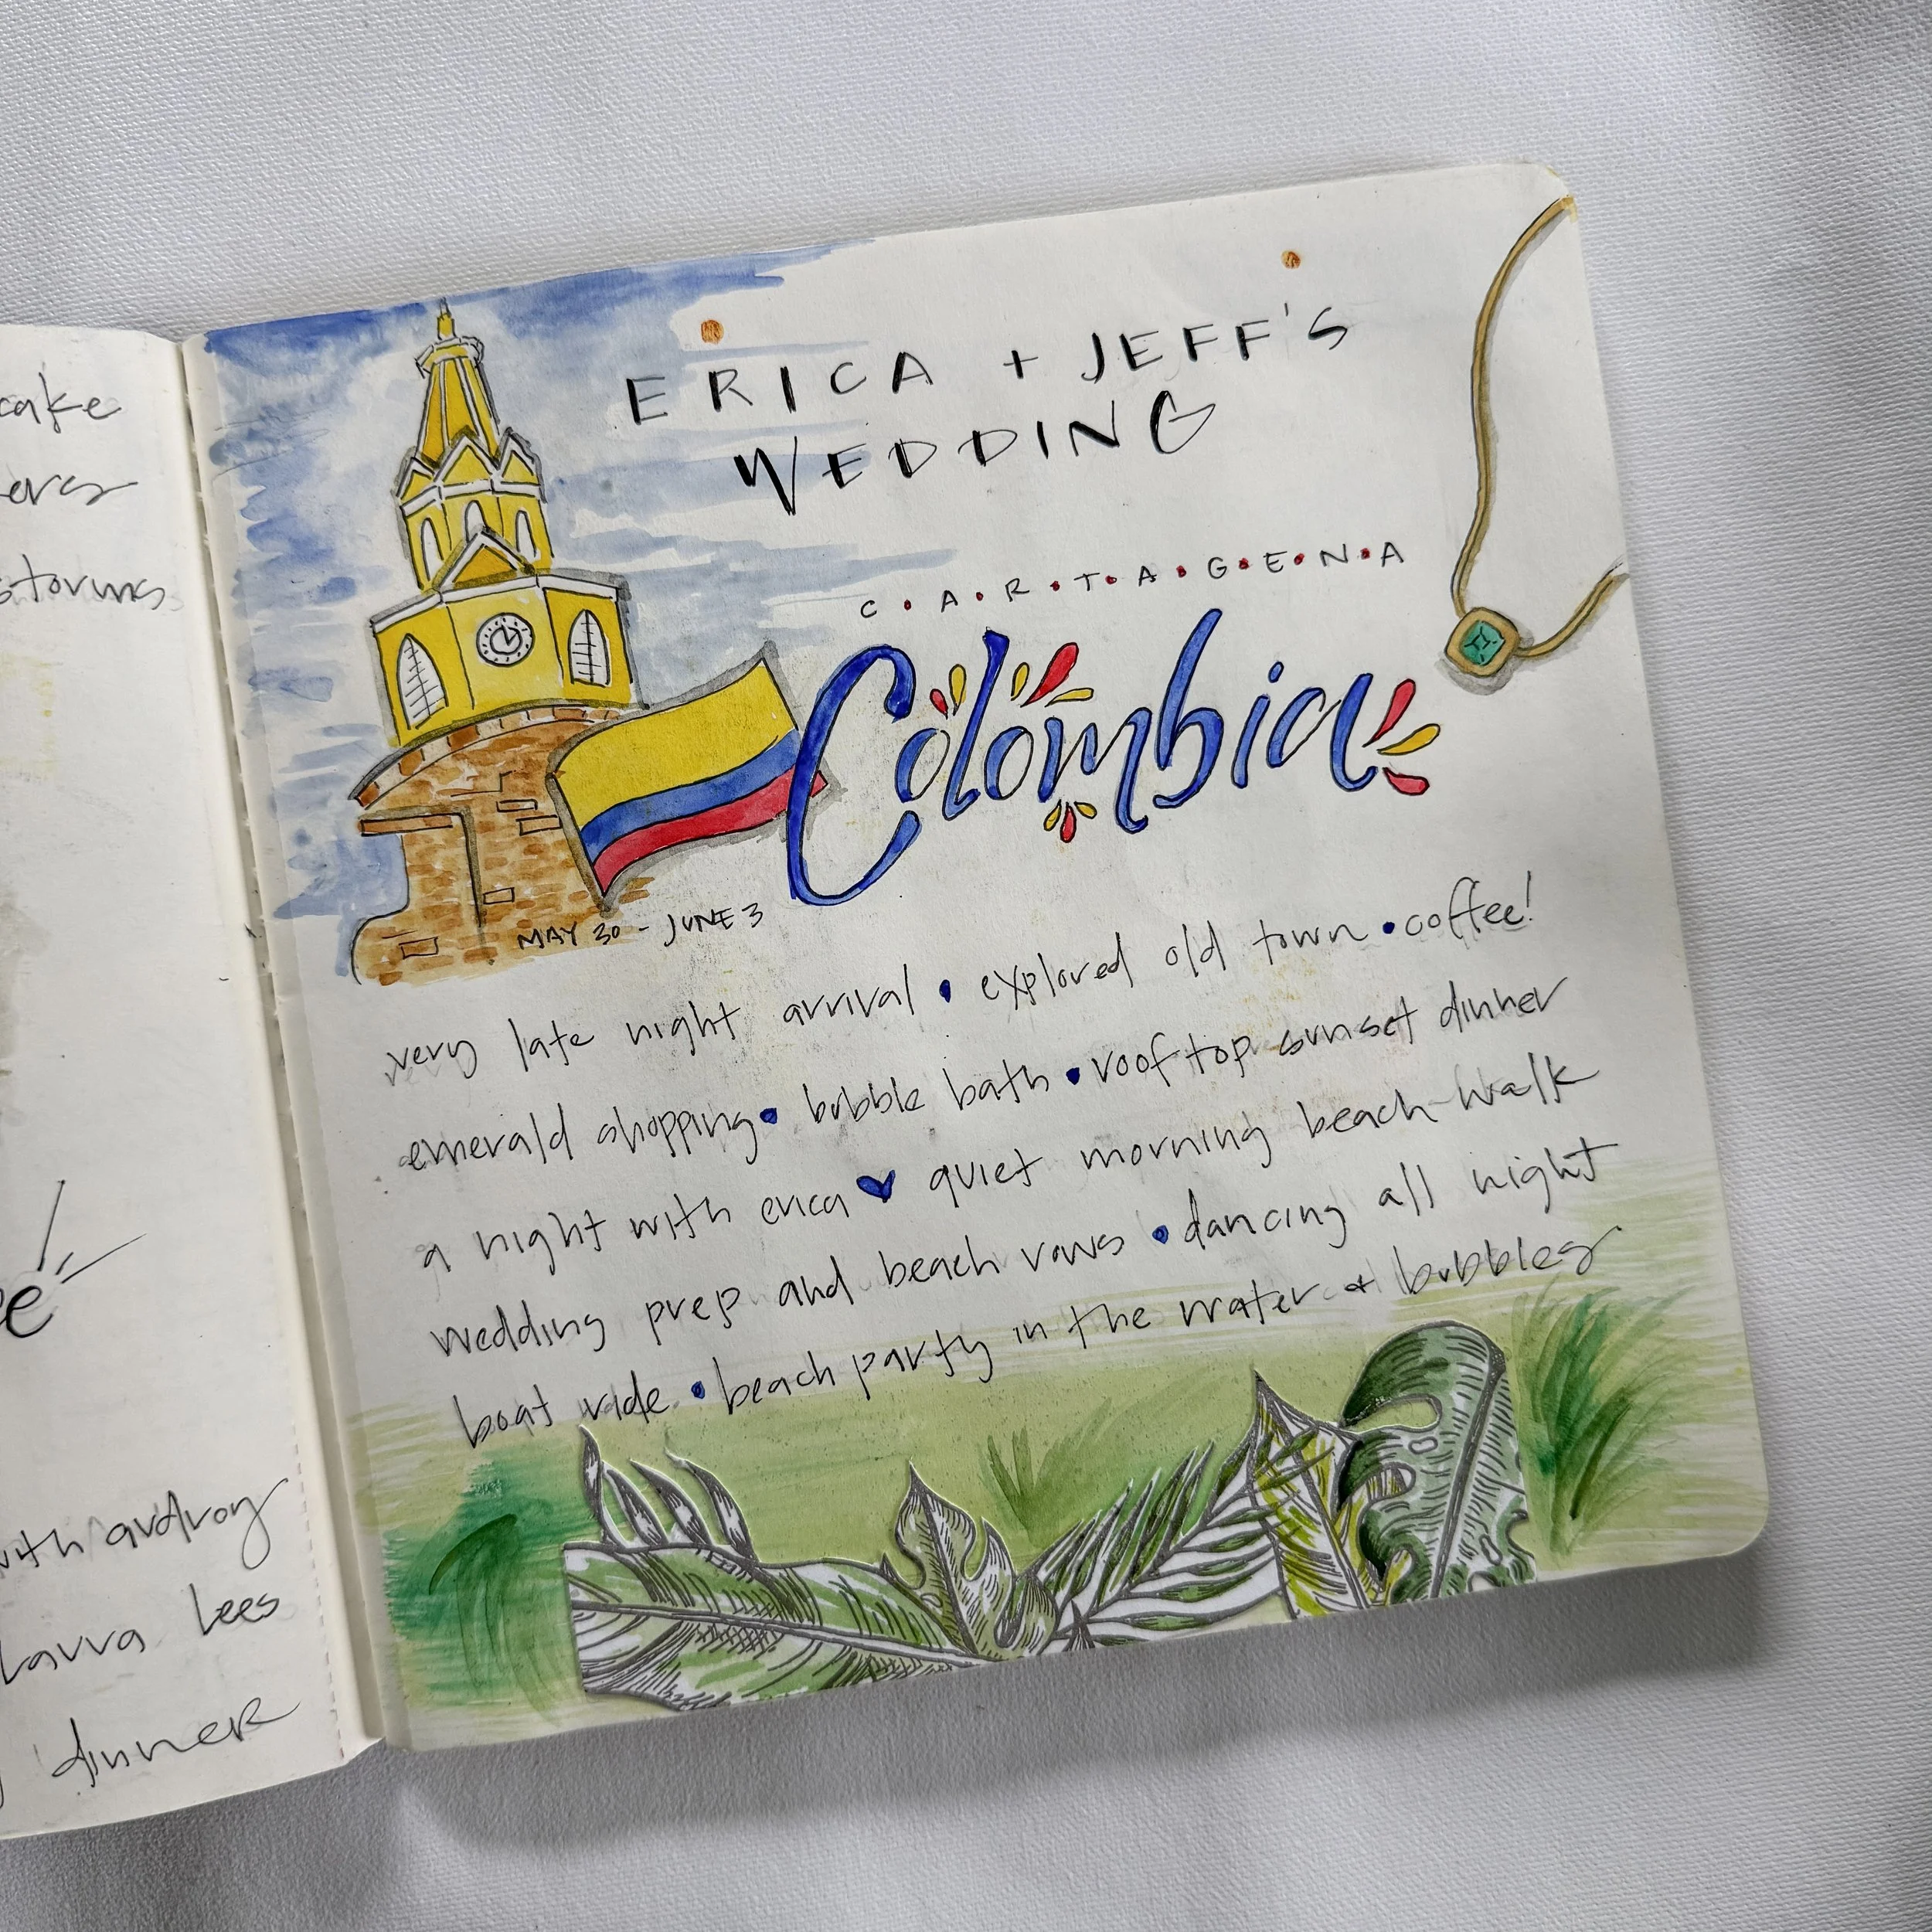 cake
storms
with audrey
Laura Lees
dinner
ERICA + JEFF'S
WEDDING
C•A•R•T•A•G•E•N•A
Colombia
MAY 30 - JUNE 3
very late night arrival • explored old town • coffee!
emerald shopping • bubble bath • rooftop sunset dinner
a night with erica ♥ quiet morning beach walk
wedding prep and beach vows • dancing all night
boat ride • beach party in the water + bubbles